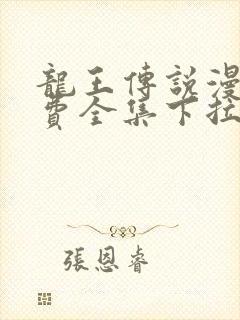 龍王傳說漫
費全集下拉
張恩睿